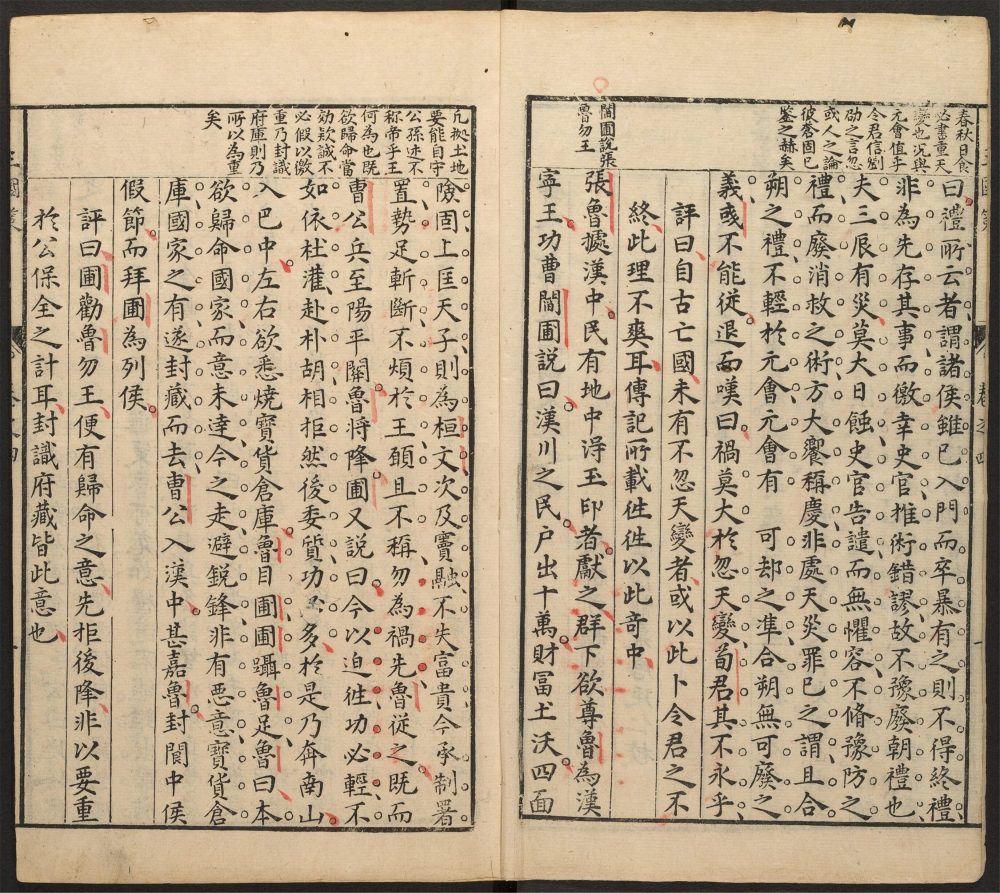 春秋日食
必書重天
變也況與
元會值乎
令君信劉
劭之言忽
或人之論
彼昏固已
鉴之赫矣
曰禮所云者謂諸侯雖已入門而卒暴有之則不得終禮
非為先存其事而徼幸史官推術錯謬故不豫廢朝禮也
夫三辰有災莫大日蝕史官告譴而無懼容不脩豫防之
禮而廢消救之術方大饗稱慶非處天災罪已之謂且合
朔之禮不輕於元會元會有 可却之凖合朔無可廢之
義或不能從退而嘆曰禍莫大於忽天變荀君其不永乎
評曰自古亡國未有不忽天變者或以此卜令君之不
終此理不爽耳傳記所載徃徃以此竒中
閻圃說張
魯勿王
張魯據漢中民有地中得玉印者獻之群下欲尊魯為漢
寧王功曹閻圃說曰漢川之民户出十萬財富土沃四面
凡據土地
要能自守
公孫述不
称帝乎王
何為也既
欲歸命當
效欵誠不
必假以徼
重乃封識
府庫則乃
所以為重
矣
險固上匡天子則為桓文次及竇融不失富貴今承制署
置勢足斬斷不煩於王頋且不稱勿為禍先魯從之既而
曹公兵至陽平關魯将降圃又說曰今以迫徃功必輕不
如依杜濩赴朴胡相拒然後委質功 多於是乃奔南山
入巴中左右欲悉燒寶貨倉庫魯目圃圃躡魯足魯曰本
欲歸命國家而意未達今之走避鋭鋒非有惡意寶貨倉
庫國家之有遂封藏而去曹公入漢中甚嘉魯封閬中侯
假節而拜圃為列侯
評曰圃勸魯勿王便有歸命之意先拒後降非以要重
於公保全之計耳封識府藏皆此意也